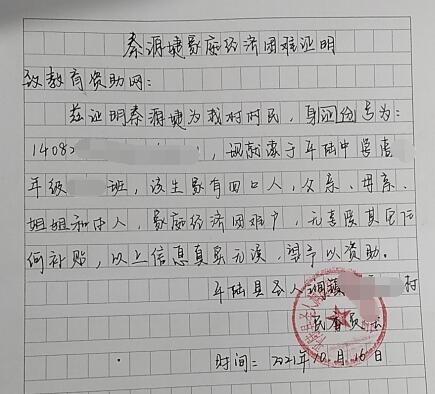 秦源婕家庭经济困难证明
致教育资助网：
兹证明秦源婕为我村村民，身证份号为：
1408，现就读于平陆中学高
年级班，该生家有四口人，父亲、母亲、
姐姐和本人，家庭经济困难户，无享受其它任
何补贴，以上信息真实无误，望予以资助。
平陆县圣人涧镇村
民委员会
时间：2021年10月16日